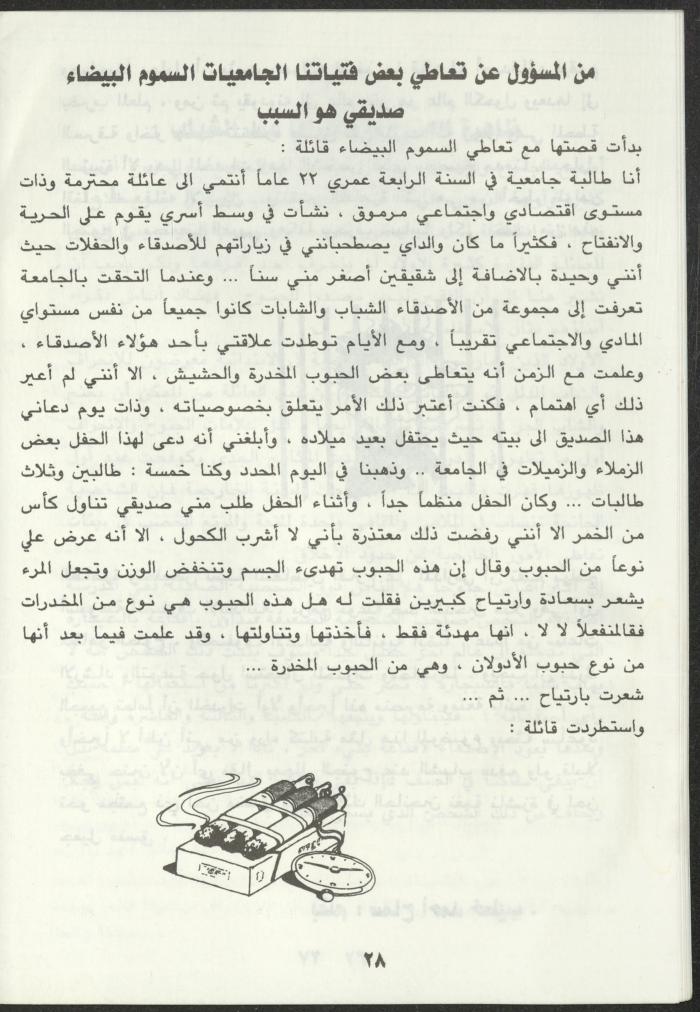 من المسؤول عن تعاطي بعض فتياتنا الجامعيات السموم البيضاء
صديقي هو السبب
بدأت قصتها مع تعاطي السموم البيضاء قائلة :
أنا طالبة جامعية في السنة الرابعة عمري ٢٢ عاماً أنتمي الى عائلة محترمة وذات
مستوى اقتصادي واجتماعي مرموق ، نشأت في وسط أسري يقوم على الحرية
والانفتاح ، فكثيراً ما كان والداي يصطحبانني في زياراتهم للأصدقاء والحفلات حيث
أنني وحيدة بالاضافة إلى شقيقين أصغر مني سناً ... وعندما التحقت بالجامعة
تعرفت إلى مجموعة من الأصدقاء الشباب والشابات كانوا جميعاً من نفس مستواي
المادي والاجتماعي تقريباً ، ومع الأيام توطدت علاقتي بأحد هؤلاء الأصدقاء ،
وعلمت مع الزمن أنه يتعاطى بعض الحبوب المخدرة والحشيش ، الا أنني لم أعير
ذلك أي اهتمام ، فكنت أعتبر ذلك الأمر يتعلق بخصوصياته ، وذات يوم دعاني
هذا الصديق الى بيته حيث يحتفل بعيد ميلاده ، وأبلغني أنه دعى لهذا الحفل بعض
الزملاء والزميلات في الجامعة .. وذهبنا في اليوم المحدد وكنا خمسة : طالبين وثلاث
طالبات ... وكان الحفل منظماً جداً ، وأثناء الحفل طلب مني صديقي تناول كأس
من الخمر الا أنني رفضت ذلك معتذرة بأني لا أشرب الكحول ، الا أنه عرض علي
نوعاً من الحبوب وقال إن هذه الحبوب تهدىء الجسم وتنخفض الوزن وتجعل المرء
يشعر بسعادة وارتياح كبيرين فقلت له هل هذه الحبوب هي نوع من المخدرات
فقالمنفعلاً لا لا ، انها مهدئة فقط ، فأخذتها وتناولتها ، وقد علمت فيما بعد أنها
من نوع حبوب الأدولان ، وهي من الحبوب المخدرة ...
شعرت بارتياح ... ثم ...
واستطردت قائلة :
٢٨